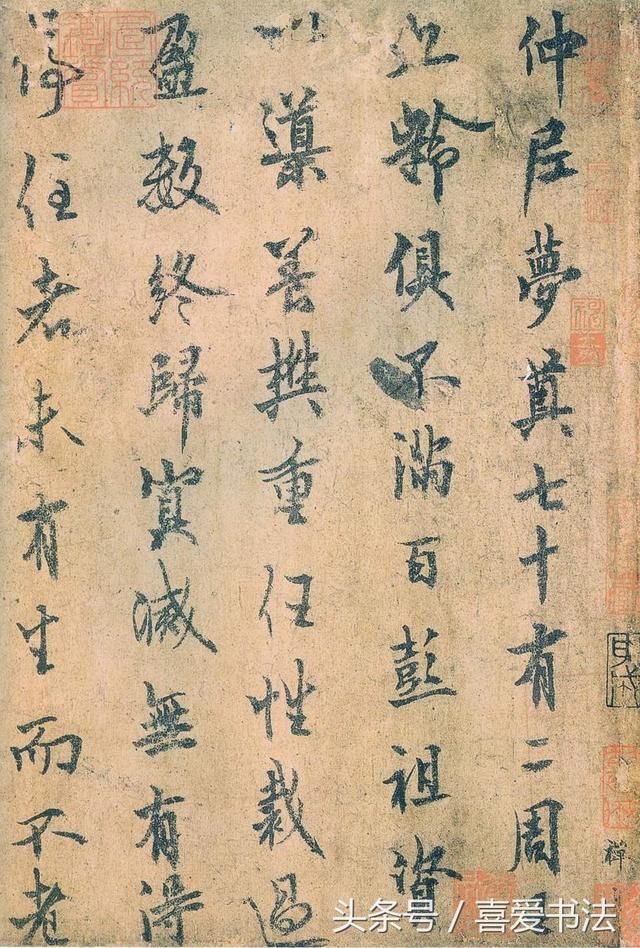 仲尼夢奠七十有二周
九齡俱不滿百彭祖資
以導養樊重任性裁過
盈數終歸冥滅無有得
停住者未有生而不老
头条号 / 喜爱书法